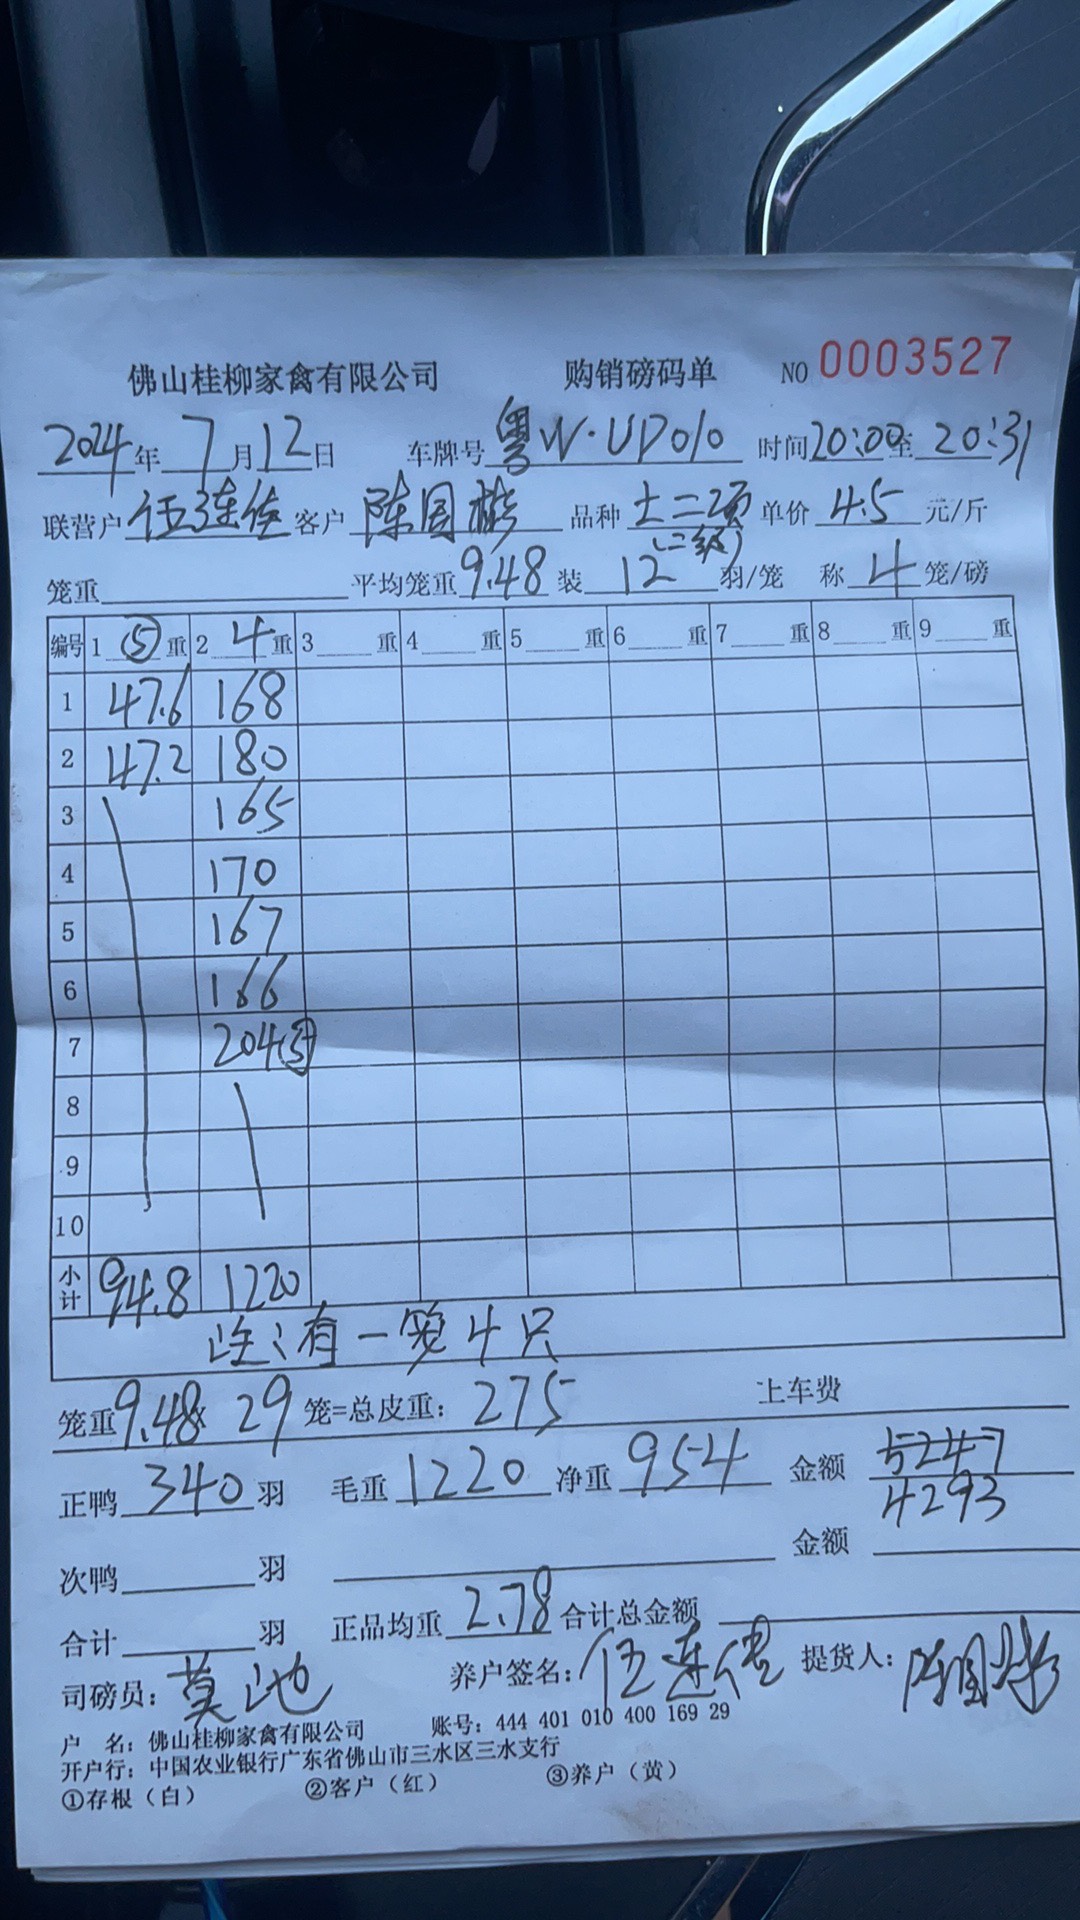 佛山桂柳家禽有限公司 购销磅码单 NO 0003527
2024年 7月12日 车牌号 粤W·UD010 时间20:00至20:31
联营户 伍连佳 客户 陈国彬 品种 土二项 单价 4.5 元/斤
(二级)
笼重 平均笼重 9.48 装 12 羽/笼 称 4 笼/磅
编号 1 ⑤ 重 2 4 重 3 重 4 重 5 重 6 重 7 重 8 重 9 重
1 47.6 168
2 47.2 180
3 165
4 170
5 167
6 166
7 204(5)
8
9
10
小计 94.8 1220
注:有一笼4只
笼重9.48× 29 笼=总皮重: 275 上车费
正鸭 340 羽 毛重 1220 净重 954 金额 5247
4293
次鸭 羽 金额
合计 羽 正品均重 2.78 合计总金额
司磅员: 莫池 养户签名: 伍连佳 提货人: 陈国彬
户 名: 佛山桂柳家禽有限公司 账号: 444 401 010 400 169 29
开户行: 中国农业银行广东省佛山市三水区三水支行
①存根(白) ②客户(红) ③养户(黄)